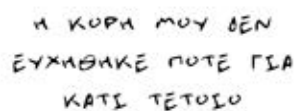 Η ΚΟΡΗ ΜΟΥ ΔΕΝ
ΕΥΧΗΘΗΚΕ ΠΟΤΕ ΓΙΑ
ΚΑΤΙ ΤΕΤΟΙΟ